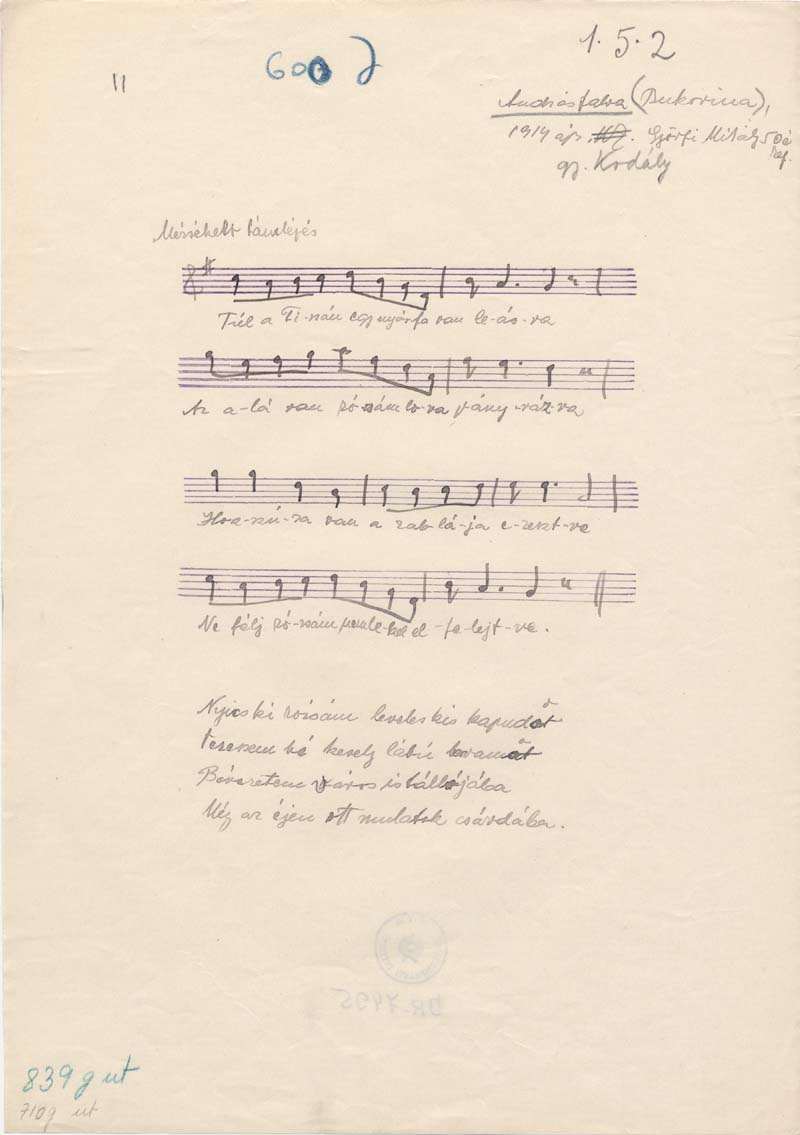 1.5.2
600
11
Andrásfalva (Bukovina),
1914 ápr. Győrfi Mihály 50 é
ref.
gy. Kodály
Mérsékelt tánclépés
Túl a Ti-szán egy nyárfa van le-ás-va
Az a-lá van ró-zsám lo-va pány-váz-va
Hosz-szú-ra van a zab-lá-ja e-reszt-ve
Ne félj ró-zsám nem le-szel el-fe-lejt-ve.
Nyisd ki rózsám leveles kis kapudot
kesely lábú lovamot
Bévezetem város istállójába
Még az éjen ott mulatok csárdába.
DR-7495
839 g ut
710 g ut